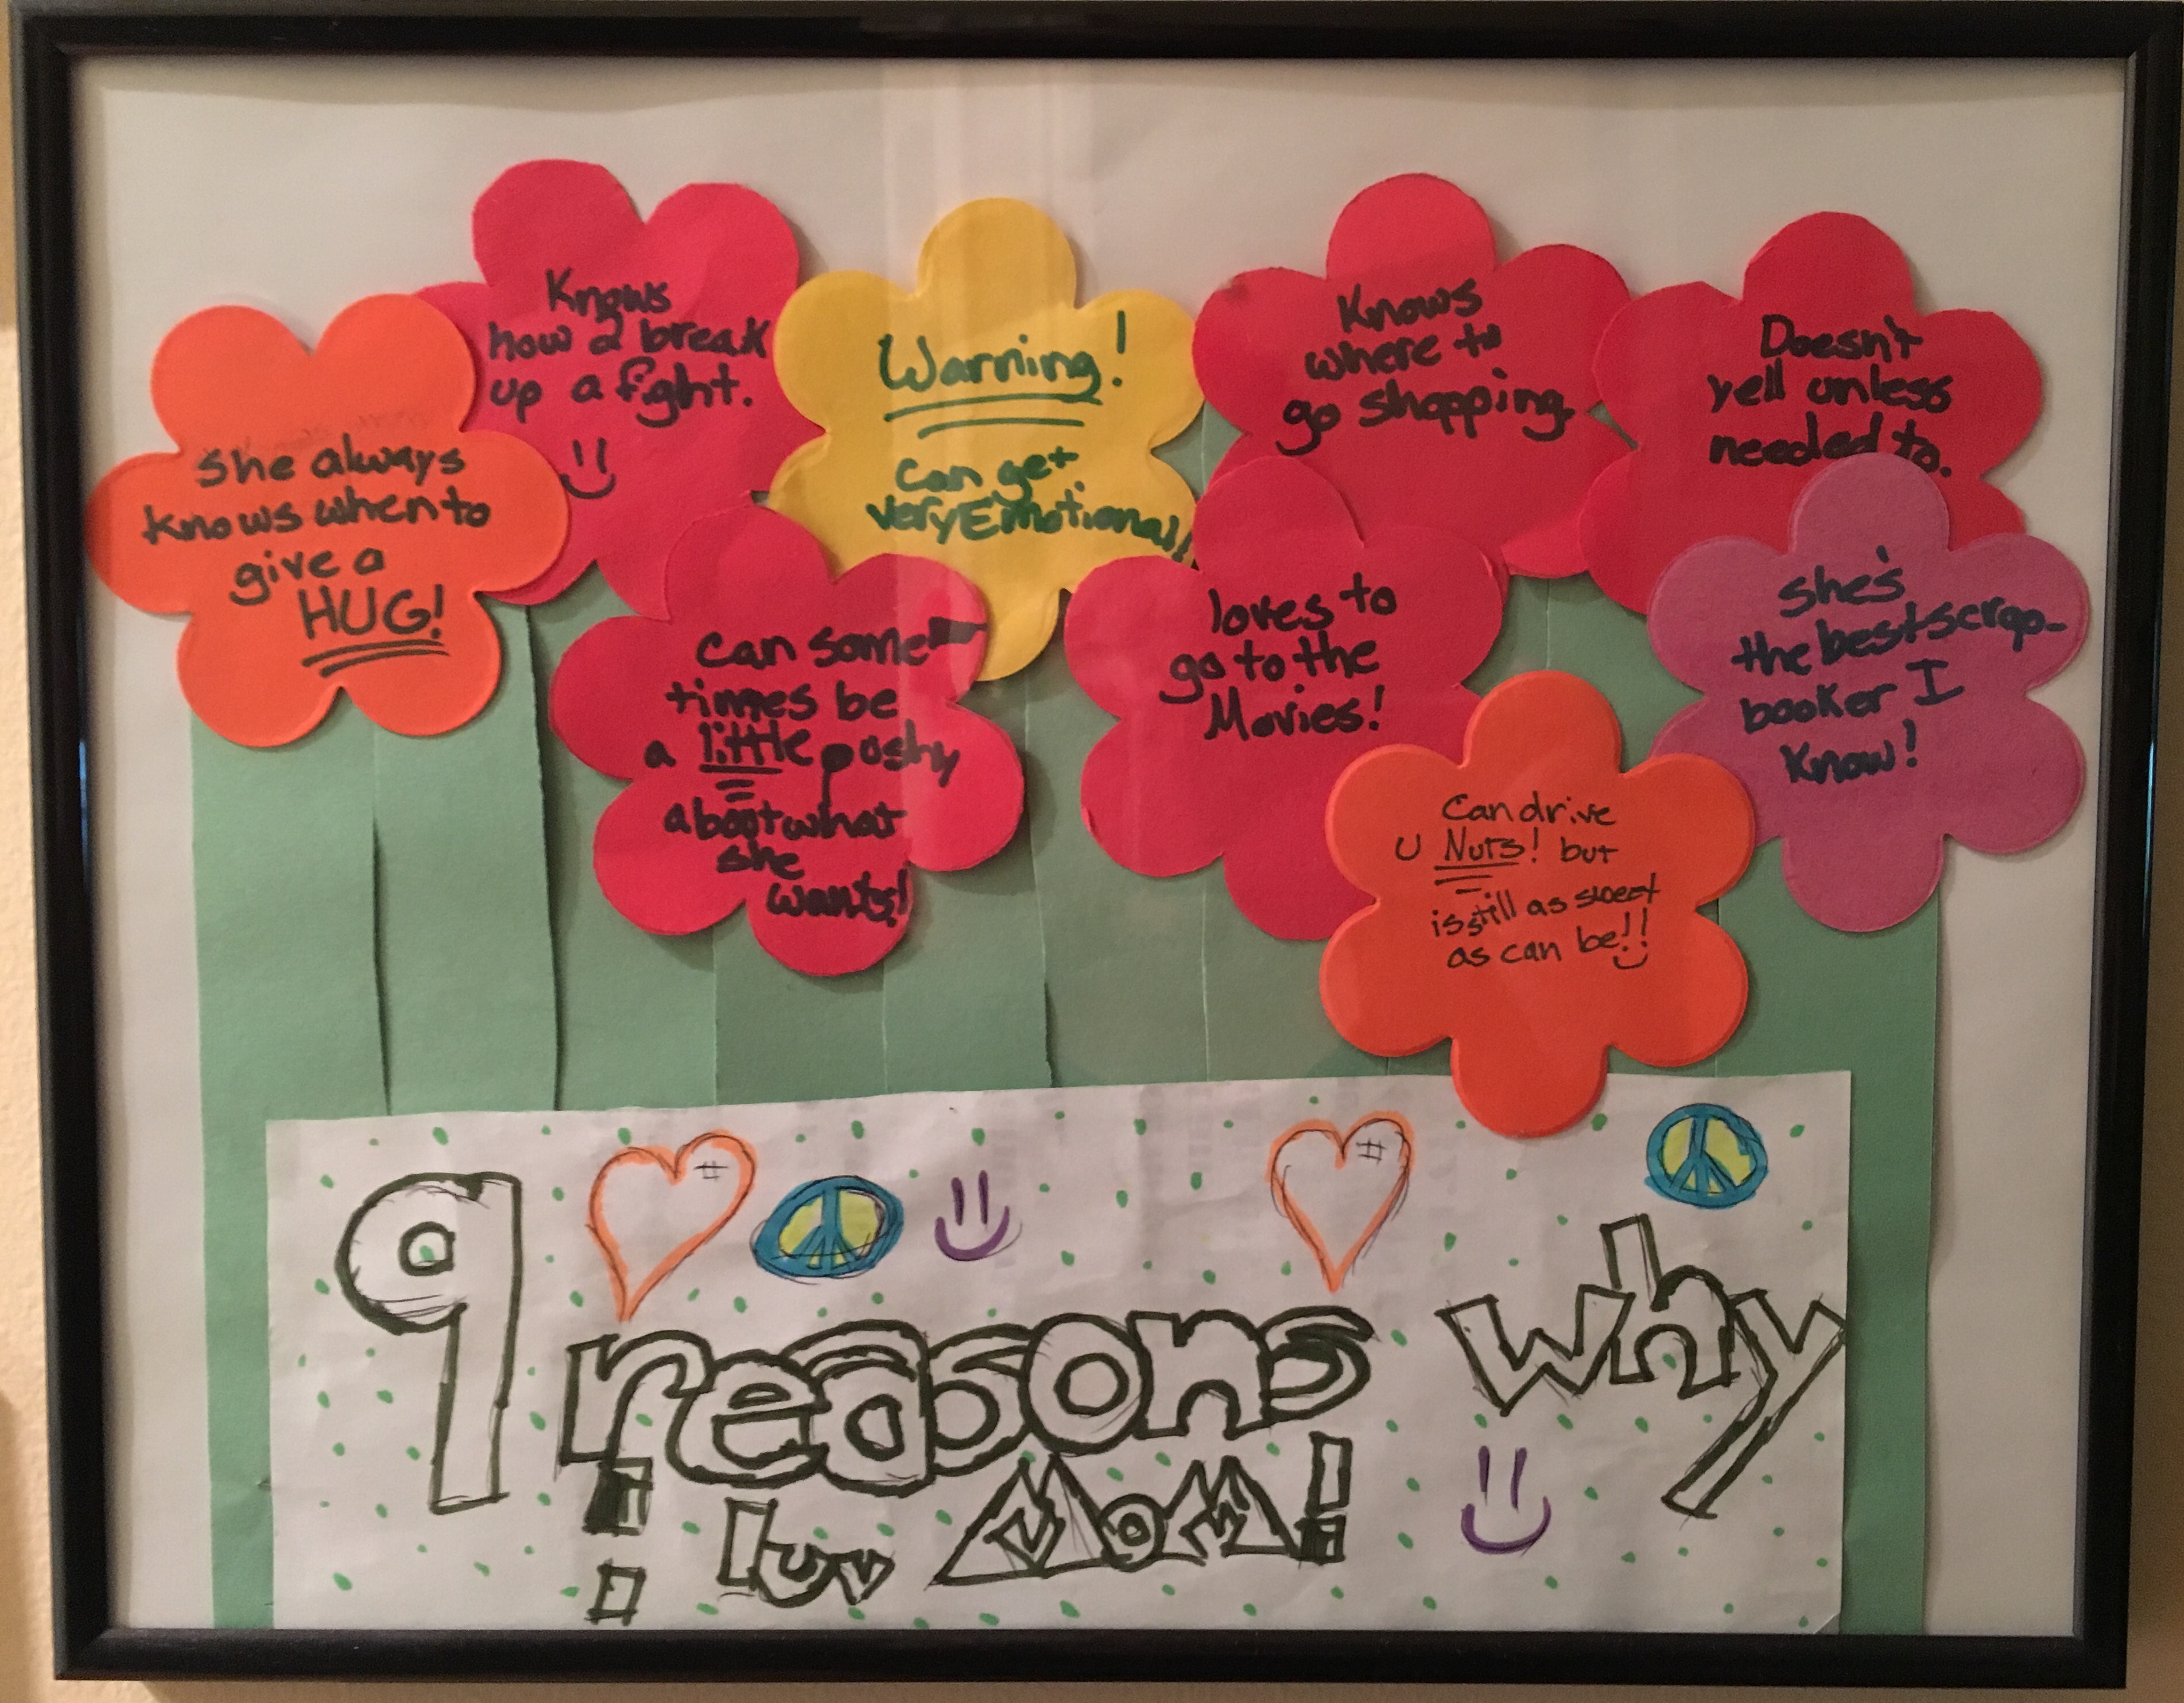 She always
knows when to
give a
HUG!
Knows
how 2 break
up a fight.
Warning!
Can get
very Emotional!
Knows
where to
go shopping.
Doesn't
yell unless
needed to.
Can some-
times be
a little pushy
about what
she
wants!
loves to
go to the
Movies!
Can drive
U Nuts! but
is still as sweet
as can be!!
she's
the best scrap-
booker I
know!
9
reasons why
i luv MoM!